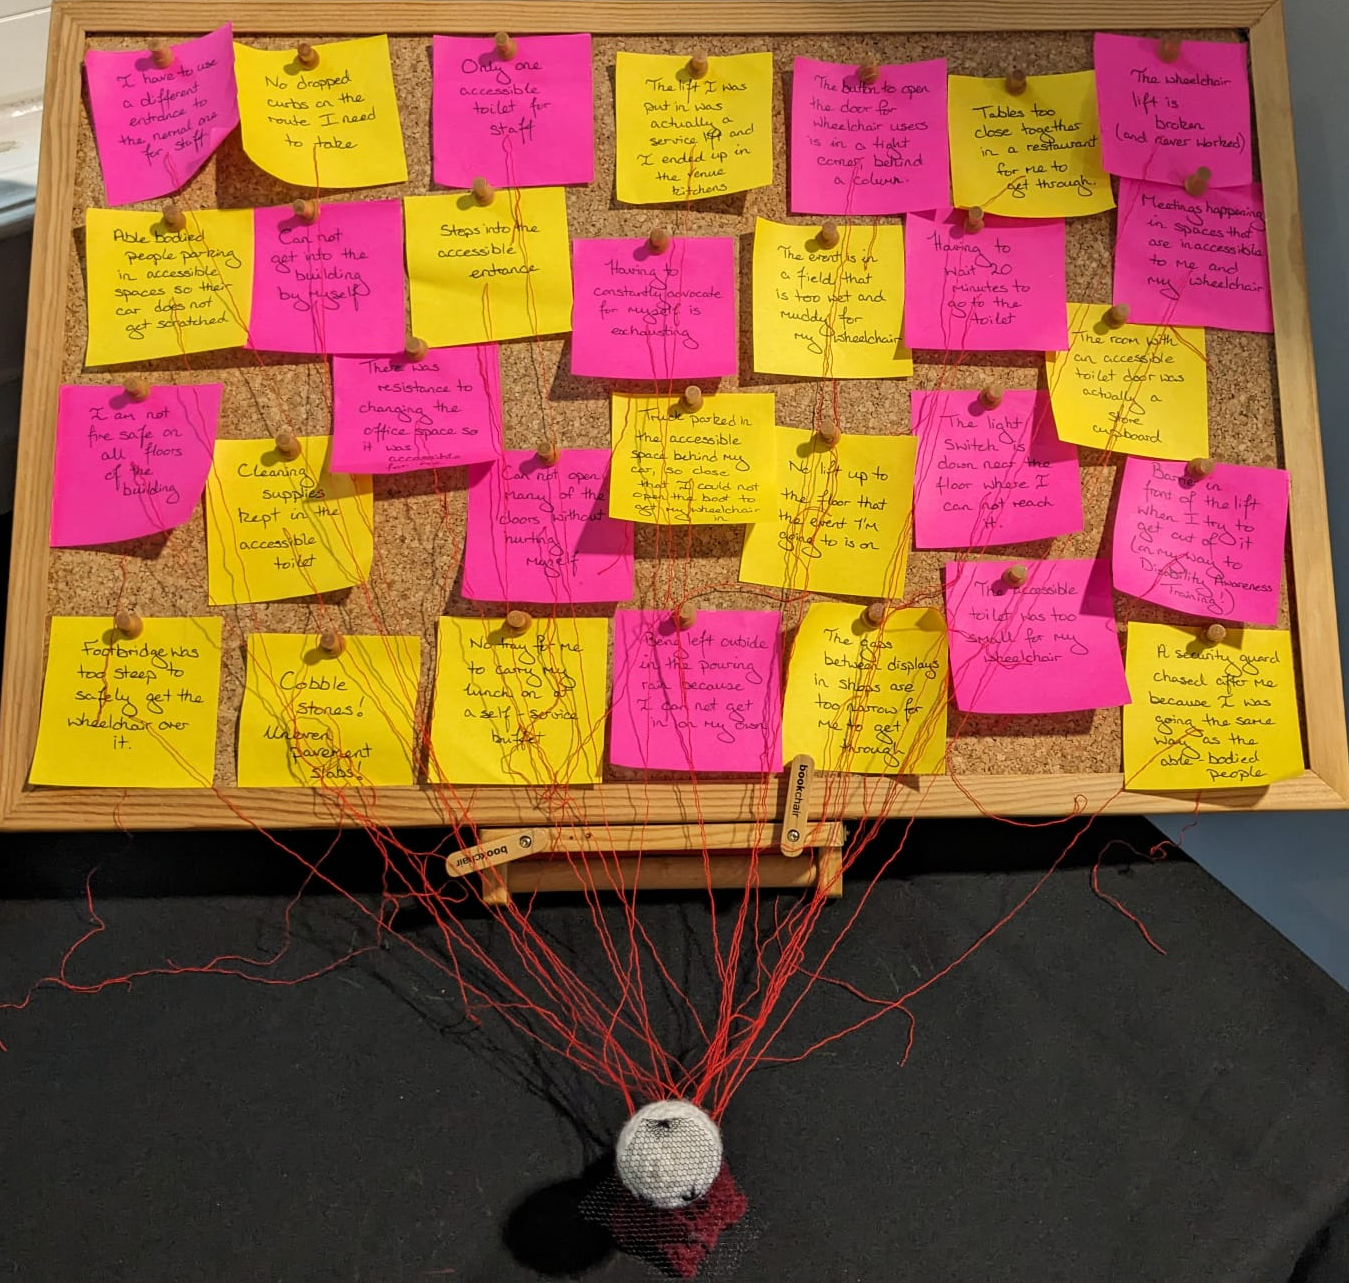 I have to use
a different
entrance to
the normal one
for staff
No dropped
curbs on the
route I need
to take
Only one
accessible
toilet for
staff
The lift I was
put in was
actually a
service lift and
I ended up in
the venue
kitchens
The button to open
the door for
wheelchair users
is in a tight
corner, behind
a column.
Tables too
close together
in a restaurant
for me to
get through.
The wheelchair
lift is
broken
(and never worked)
Able bodied
people parking
in accessible
spaces so their
car does not
get scratched
Can not
get into the
building
by myself
Steps into the
accessible
entrance
Having to
constantly advocate
for myself is
exhausting
The event is in
a field that
is too wet and
muddy for
my wheelchair
Having to
wait 20
minutes to
go to the
toilet
Meetings happening
in spaces that
are inaccessible
to me and
my wheelchair
I am not
fire safe on
all floors
of the
building
Cleaning
supplies
kept in the
accessible
toilet
There was
resistance to
changing the
office space so
it was
accessible
for me
Can not open
many of the
doors without
hurting
myself
Truck parked in
the accessible
space behind my
car, so close
that I could not
open the boot to
get my wheelchair
in
No lift up to
the floor that
the event I'm
going to is on
The light
switch is
down near the
floor where I
can not reach
it.
The room with
an accessible
toilet door was
actually a
store
cupboard
Barrier in
front of the lift
when I try to
get out of it
(on my way to
Disability Awareness
Training!)
Footbridge was
too steep to
safely get the
wheelchair over
it.
Cobble
stones!
Uneven
pavement
slabs!
No tray for me
to carry my
lunch on at
a self-service
buffet
Being left outside
in the pouring
rain because
I can not get
in on my own
The gaps
between displays
in shops are
too narrow for
me to get
through
The accessible
toilet was too
small for my
wheelchair
A security guard
chased after me
because I was
going the same
way as the
able-bodied
people
bookchair
bookchair